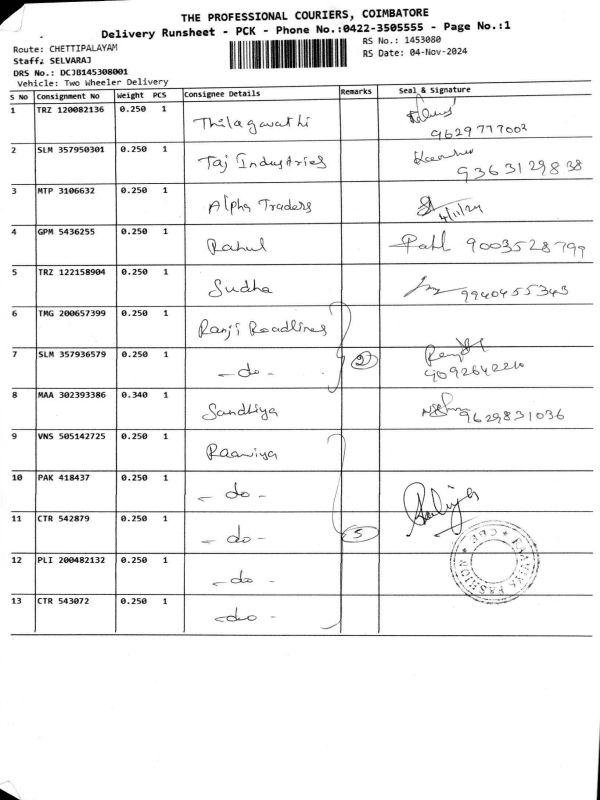 THE PROFESSIONAL COURIERS, COIMBATORE
Delivery Runsheet - PCK - Phone No.:0422-3505555 - Page No.:1
Route: CHETTIPALAYAM
RS No.: 1453080
Staff: SELVARAJ
RS Date: 04-Nov-2024
DRS No.: DCJB145308001
Vehicle: Two Wheeler Delivery
S No Consignment No Weight PCS Consignee Details Remarks Seal & Signature
1 TRZ 120082136 0.250 1 Thilagavathi 9629777002
2 SLM 357950301 0.250 1 Taj Industries 9363129838
3 MTP 3106632 0.250 1 Alpha Traders 4/11/24
4 GPM 5436255 0.250 1 Rahul 9003528799
5 TRZ 122158904 0.250 1 Sudha 9940455343
6 TMG 200657399 0.250 1 Ranji Roadlines
7 SLM 357936579 0.250 1 - do - 2 9092642210
8 MAA 302393386 0.340 1 Sandhiya 9629831036
9 VNS 505142725 0.250 1 Raaniya
10 PAK 418437 0.250 1 - do -
11 CTR 542879 0.250 1 - do - 5
12 PLI 200482132 0.250 1 - do -
13 CTR 543072 0.250 1 - do -